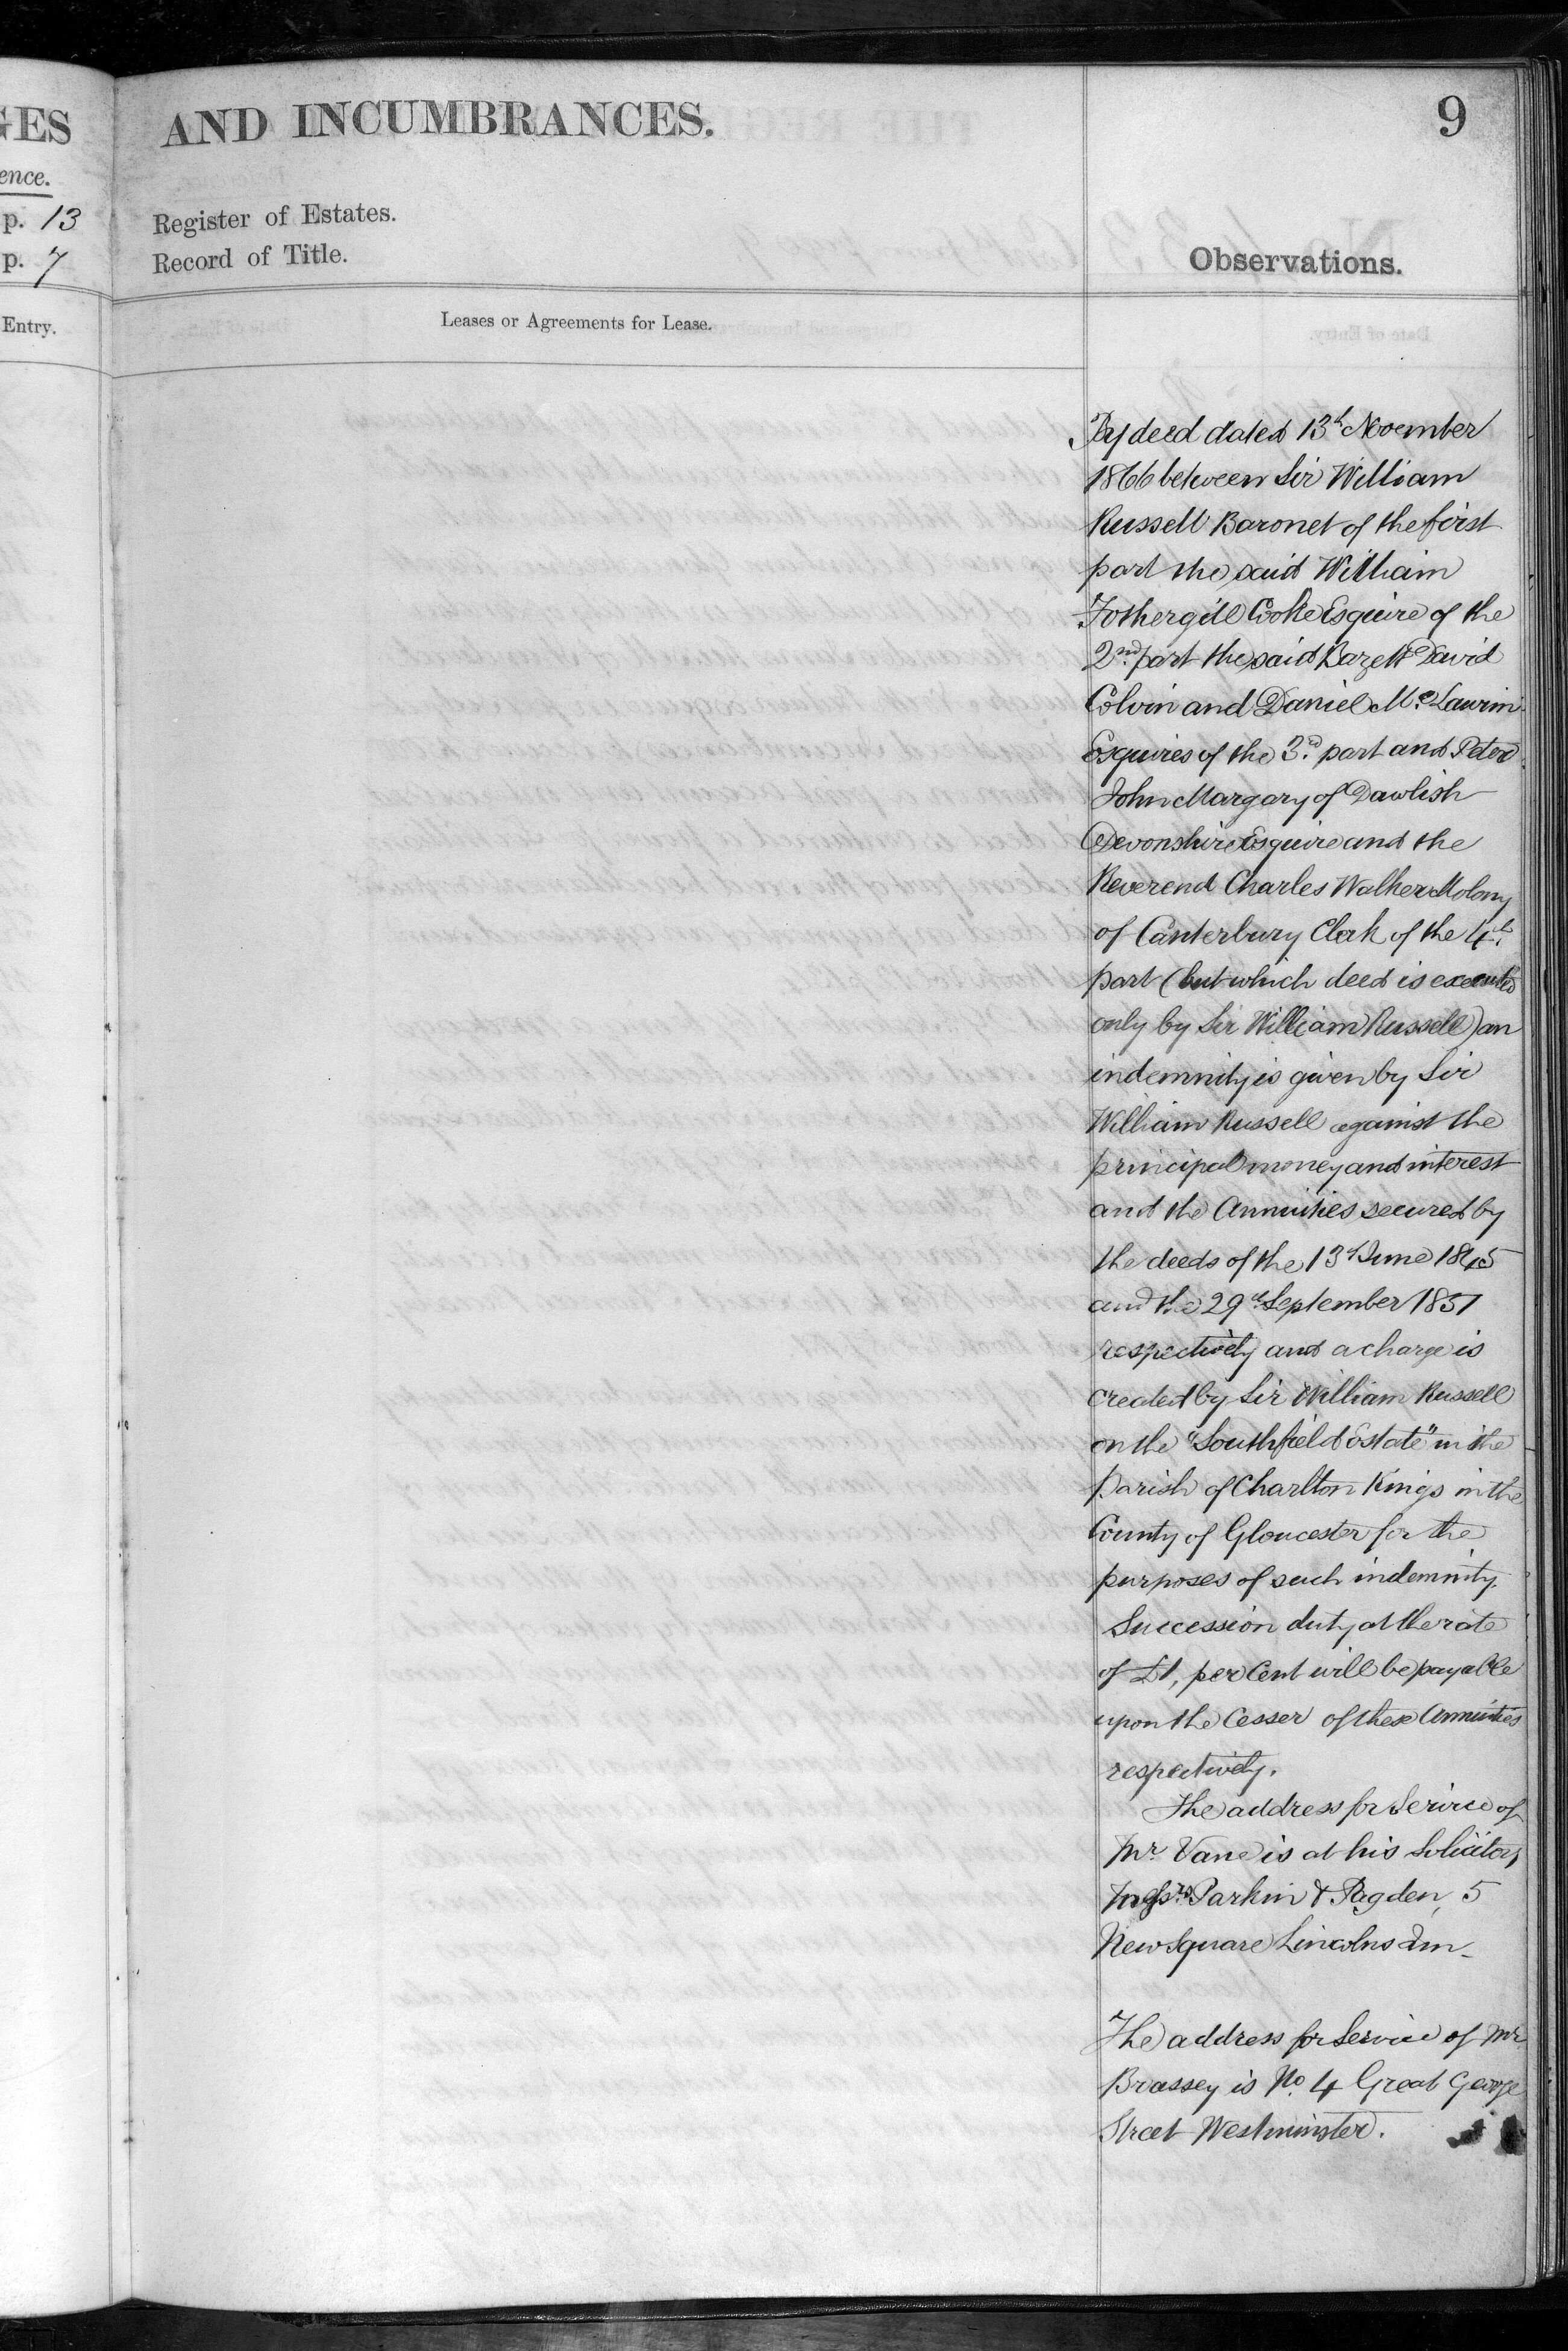 GES
ence.
p. 13
p. 7
Entry.
AND INCUMBRANCES.
9
Register of Estates.
Record of Title.
Observations.
Leases or Agreements for Lease.
By deed dated 13th November
1866 between Sir William
Russell Baronet of the first
part the said William
Fothergill Cooke Esquire of the
2nd part the said Bazett David
Colvin and Daniel Mc.Laurin
Esquires of the 3d. part and Peter
John Margary of Dawlish
Devonshire Esquire and the
Reverend Charles Walker Molony
of Canterbury Clerk of the 4th.
part (but which deed is executed
only by Sir William Russell) an
indemnity is given by Sir
William Russell against the
principal money and interest
and the Annuities secured by
the deeds of the 13th June 1845
and the 29th September 1857
respectively and a charge is
created by Sir William Russell
on the "Southfield Estate" in the
parish of Charlton Kings in the
County of Gloucester for the
purposes of such indemnity.
Succession duty at the rate
of £1, per Cent will be payable
upon the Cesser of these Annuities
respectively.
The address for Service of
Mr Vane is at his Solicitors
Messrs Parkin & Pagden, 5
New Square Lincolns Inn
The address for Service of Mr
Brassey is No. 4 Great George
Street Westminster.